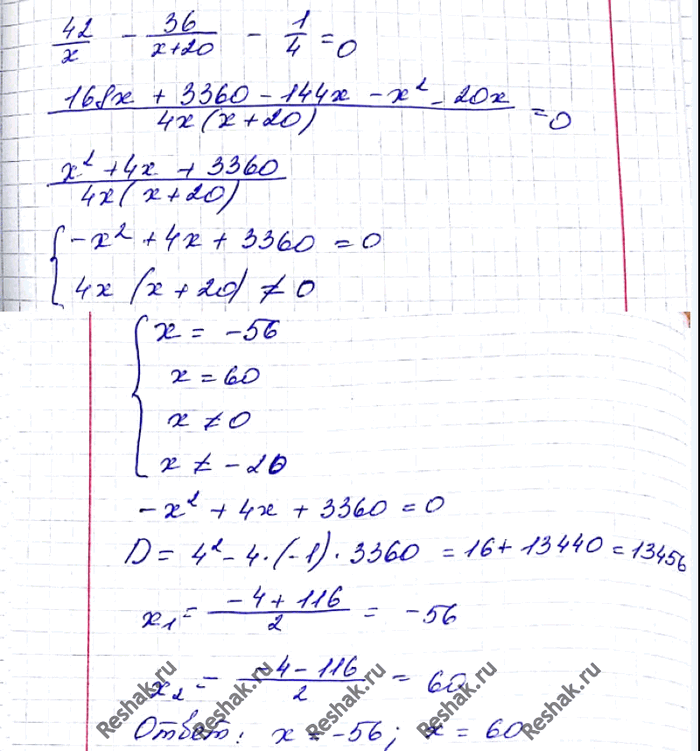 42/x - 36/(x+20) - 1/4 = 0
(168x + 3360 - 144x - x² - 20x)/(4x(x+20)) = 0
(x² + 4x + 3360)/(4x(x+20))
{ -x² + 4x + 3360 = 0
4x (x + 20) ≠ 0
{ x = -56
x = 60
x ≠ 0
x ≠ -20
-x² + 4x + 3360 = 0
D = 4² - 4·(-1)·3360 = 16 + 13440 = 13456
x₁ = (-4 + 116)/2 = -56
x₂ = (-4 - 116)/2 = 60
Ответ: x = -56; x = 60
Reshak.ru Reshak.ru Reshak.ru Reshak.ru Reshak.ru